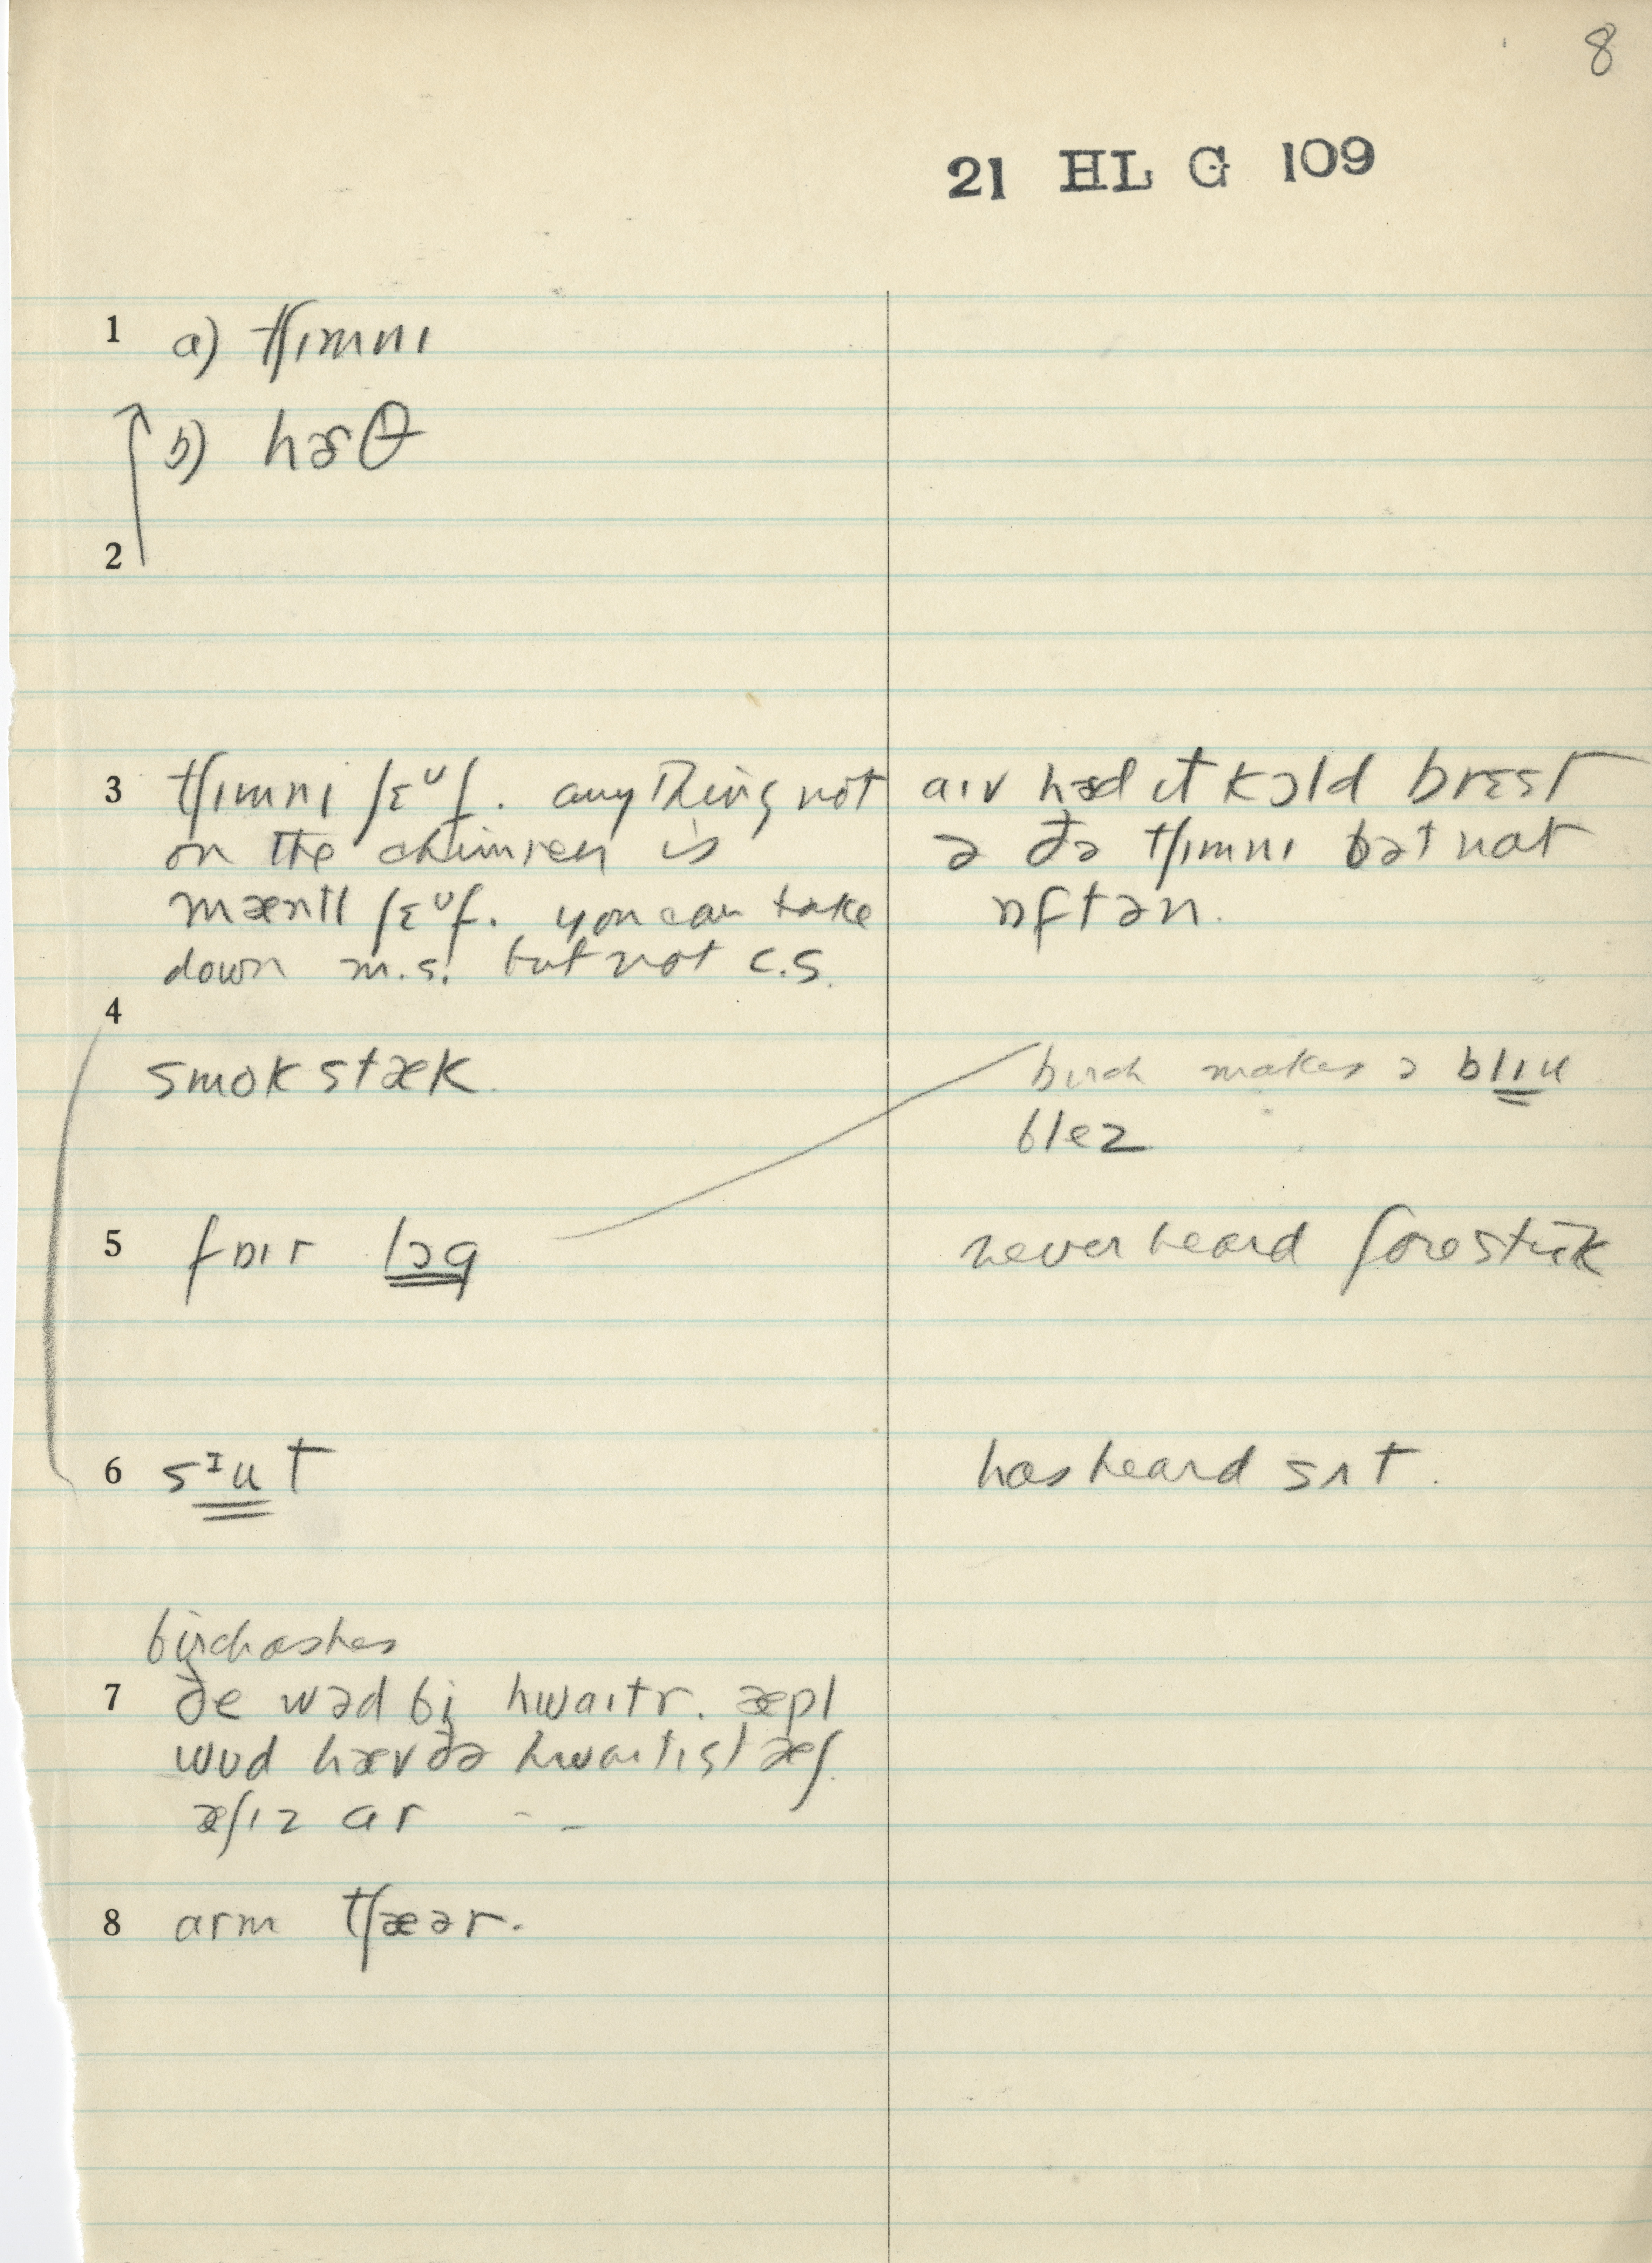 8
21 HL G 109
1 a) tʃɪmnɪ
b) hɚθ
2
3 tʃɪmnɪ ʃɛᵘf. anything not
on the chimney is
mæntl ʃɛᵘf. you can take
down m.s. but not c.s.
aɪv həd ɪt kɔld brɛst
ə ðə tʃɪmnɪ bət nat
ɒftən.
4
smok stæk
birch makes a blɪu
blez
5 fɒɪr lɔg
never heard forestɪk
6 sᴵut
has heard sʌt.
birch ashes
7 ðe wəd bi hwaɪtr. æpl
wud hæv ðə hwaɪtɪst æʃ
æʃɪz ar - -
8 arm tʃæər.